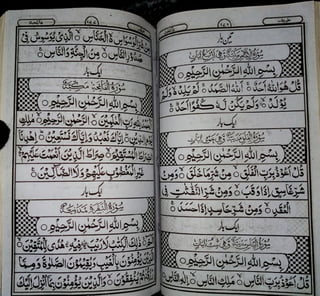 تین بار
بِسْمِ اللهِ الرَّحْمٰنِ الرَّحِيْمِ
قُلْ هُوَ اللهُ اَحَدٌ ۝ اَللهُ الصَّمَدُ ۝ لَمْ يَلِدْ وَلَمْ
يُوْلَدْ ۝ وَلَمْ يَكُنْ لَّهٗ كُفُوًا اَحَدٌ ۝
ایک بار
بِسْمِ اللهِ الرَّحْمٰنِ الرَّحِيْمِ
قُلْ اَعُوْذُ بِرَبِّ الْفَلَقِ ۝ مِنْ شَرِّ مَا خَلَقَ ۝ وَمِنْ
شَرِّ غَاسِقٍ اِذَا وَقَبَ ۝ وَمِنْ شَرِّ النَّفّٰثٰتِ فِي
الْعُقَدِ ۝ وَمِنْ شَرِّ حَاسِدٍ اِذَا حَسَدَ ۝
ایک بار
بِسْمِ اللهِ الرَّحْمٰنِ الرَّحِيْمِ
قُلْ اَعُوْذُ بِرَبِّ النَّاسِ ۝ مَلِكِ النَّاسِ ۝ اِلٰهِ النَّاسِ ۝
مِنْ شَرِّ الْوَسْوَاسِ الْخَنَّاسِ ۝ الَّذِيْ يُوَسْوِسُ فِيْ
صُدُوْرِ النَّاسِ ۝ مِنَ الْجِنَّةِ وَالنَّاسِ ۝
ایک بار
سُوْرَةُ الْفَاتِحَةِ مَكِّيَّةٌ
بِسْمِ اللهِ الرَّحْمٰنِ الرَّحِيْمِ
اَلْحَمْدُ لِلّٰهِ رَبِّ الْعٰلَمِيْنَ ۝ الرَّحْمٰنِ الرَّحِيْمِ ۝ مٰلِكِ
يَوْمِ الدِّيْنِ ۝ اِيَّاكَ نَعْبُدُ وَاِيَّاكَ نَسْتَعِيْنُ ۝ اِهْدِنَا
الصِّرَاطَ الْمُسْتَقِيْمَ ۝ صِرَاطَ الَّذِيْنَ اَنْعَمْتَ عَلَيْهِمْ
غَيْرِ الْمَغْضُوْبِ عَلَيْهِمْ وَلَا الضَّآلِّيْنَ ۝
ایک بار
بِسْمِ اللهِ الرَّحْمٰنِ الرَّحِيْمِ
الٓمّٓ ۝ ذٰلِكَ الْكِتٰبُ لَا رَيْبَ فِيْهِ هُدًى لِّلْمُتَّقِيْنَ ۝
الَّذِيْنَ يُؤْمِنُوْنَ بِالْغَيْبِ وَيُقِيْمُوْنَ الصَّلٰوةَ وَمِمَّا
رَزَقْنٰهُمْ يُنْفِقُوْنَ ۝ وَالَّذِيْنَ يُؤْمِنُوْنَ بِمَآ اُنْزِلَ اِلَيْكَ